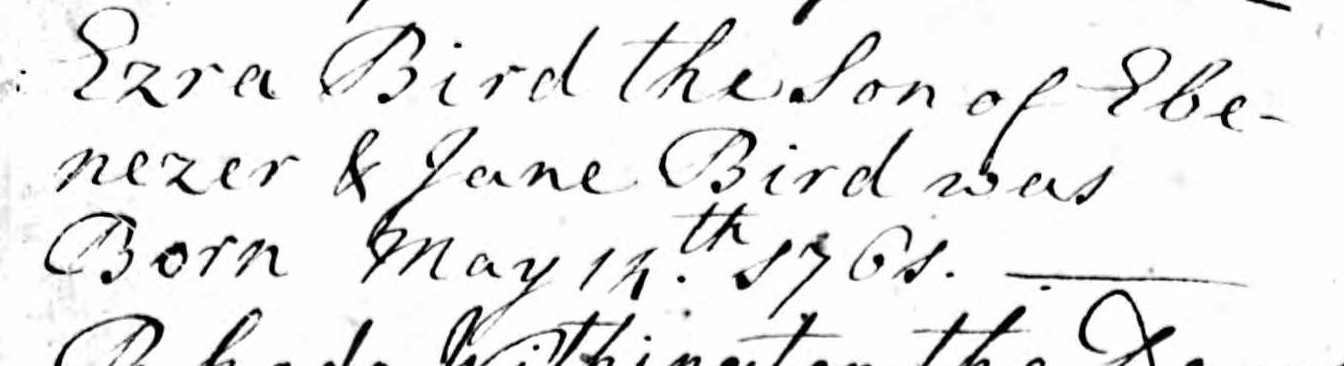 Ezra Bird the Son of Ebe-
nezer & Jane Bird was
Born May 14.th 1761.
the